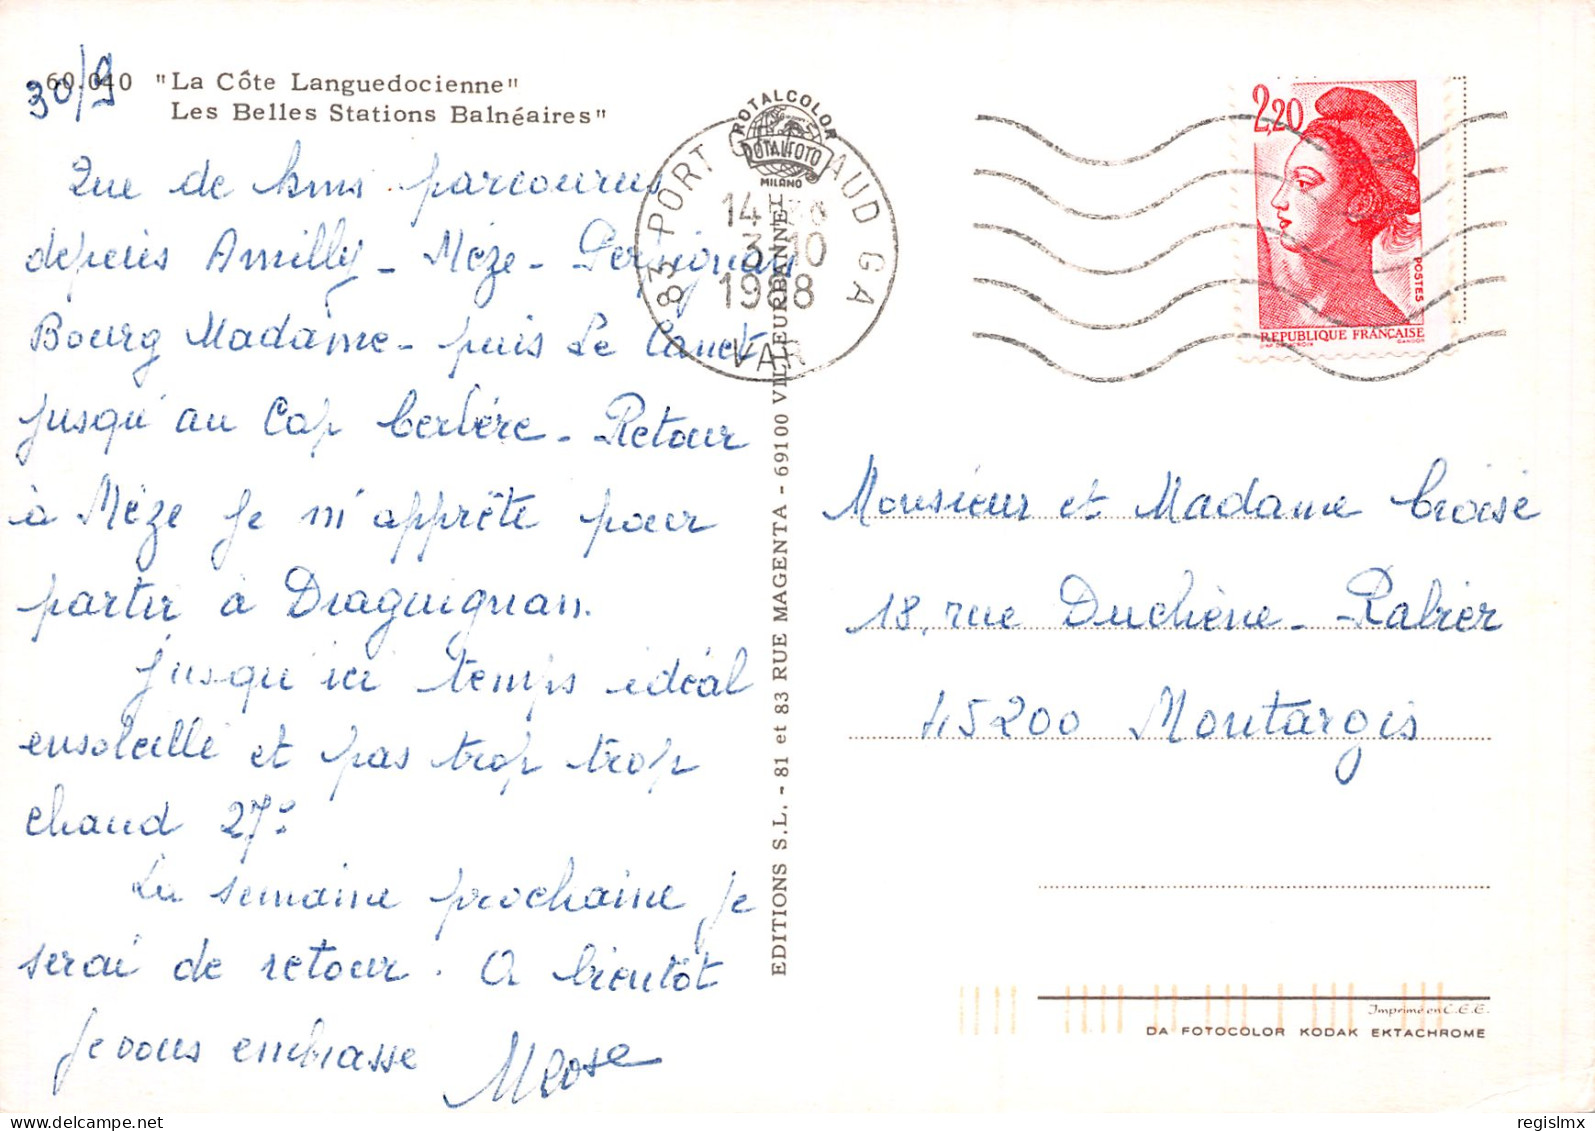 60.040 "La Côte Languedocienne"
Les Belles Stations Balnéaires"
30/9
Que de kms parcourus
depuis Amilly - Mèze - Perpignan
Bourg Madame - puis Le Canet
jusqu'au Cap Cerbère - Retour
à Mèze je m'apprête pour
partir à Draguignan.
Jusqu'ici temps idéal
ensoleillé et pas trop trop
chaud 27°.
La semaine prochaine je
serai de retour. A bientôt
Je vous embrasse MRose
ROTALCOLOR
ROTALFOTO
MILANO
83 PORT GRIMAUD GA
14 H
3-10
1988
VAR
EDITIONS S.L. - 81 et 83 RUE MAGENTA - 69100 VILLEURBANNE
2,20
POSTES
REPUBLIQUE FRANÇAISE
GANDON
Monsieur et Madame Croisé
18, rue Duchêne - Rabier
45200 Montargis
Imprimé en C.E.E.
DA FOTOCOLOR KODAK EKTACHROME
delcampe.net
regislmx